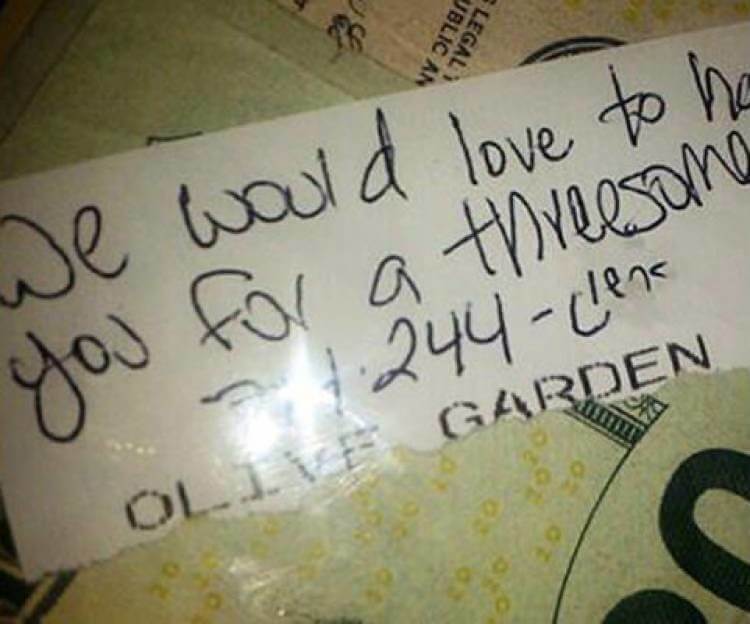 LEGAL
UBLIC AN
We would love to ha
you for a threesome
244-
OLIVE GARDEN